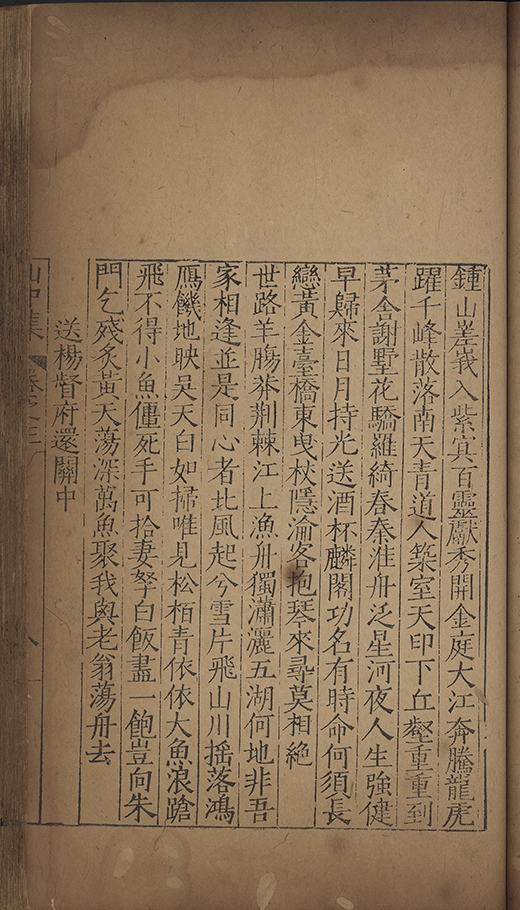 鍾山嵳峩入紫宾百靈獻秀開金庭大江奔騰龍虎
躍千峰散落南天青道人築室天印下丘壑重重到
茅舍謝墅花驕羅綺春秦淮舟泛星河夜人生強健
早歸來日月持光送酒杯麟閣功名有時命何須長
戀黃金臺橋東曳杖隱淪客抱琴來尋莫相絶
世路羊腸莽荆棘江上漁舟獨瀟灑五湖何地非吾
家相逢並是同心者北風起兮雪片飛山川揺落鴻
鴈饑地映吴天白如掃唯見松栢青依依大魚浪蹌
飛不得小魚僵死手可拾妻孥白飯盡一飽豈向朱
門乞殘炙黃天蕩深萬魚聚我與老翁蕩舟去
送楊督府還關中
山中集
卷之三
八